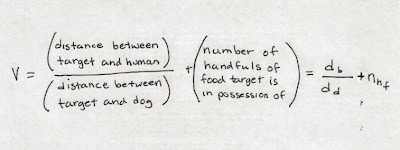 V = (distance between target and human) / (distance between target and dog) + (number of handfuls of food target is in possession of) = d_b / d_d + n_hf